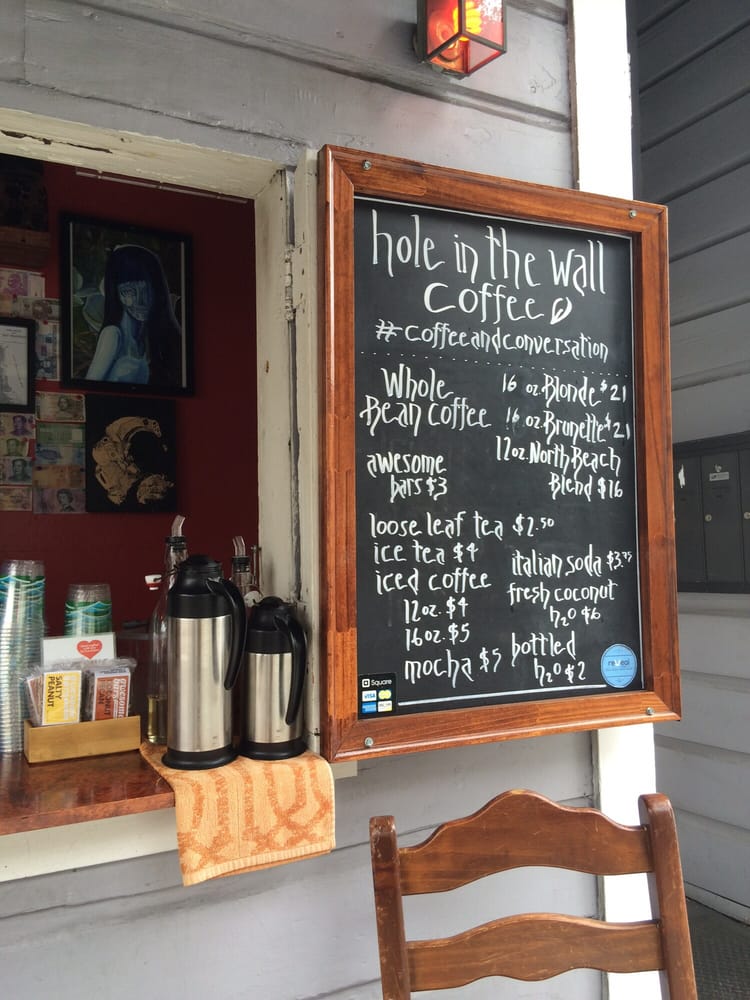 hole in the wall
coffee
#coffeeandconversation
Whole
Bean coffee
16 oz. Blonde $21
16 oz. Brunette $21
12oz. North Beach
Blend $16
awesome
bars $3
loose leaf tea $2.50
ice tea $4
iced coffee
12oz. $4
16oz. $5
mocha $5
italian soda $3.75
fresh coconut
h2o $6
bottled
h2o $2
Square
VISA
SALTY
PEANUT